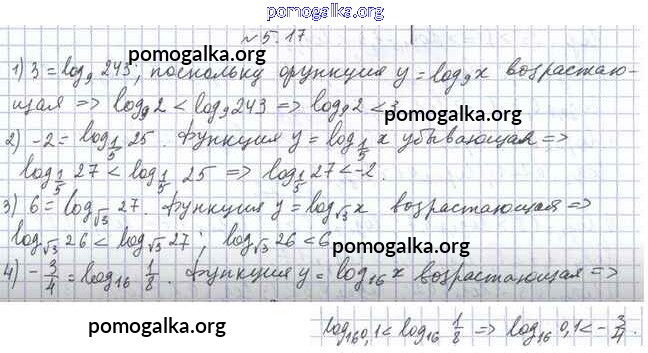 pomogalka.org
№ 5.17
pomogalka.org
1) 3 = log₉ 243; поскольку функция y = log₉x возрастаю-
щая => log₉2 < log₉243 => log₉2 < 3
pomogalka.org
2) -2 = log_{1/5} 25. Функция y = log_{1/5} x убывающая =>
log_{1/5} 27 < log_{1/5} 25 => log_{1/5} 27 < -2.
3) 6 = log_{√3} 27. Функция y = log_{√3} x возрастающая =>
log_{√3} 26 < log_{√3} 27; log_{√3} 26 < 6
pomogalka.org
4) -3/4 = log₁₆ 1/8. Функция y = log₁₆x возрастающая =>
pomogalka.org
log₁₆0,1 < log₁₆ 1/8 => log₁₆ 0,1 < -3/4.